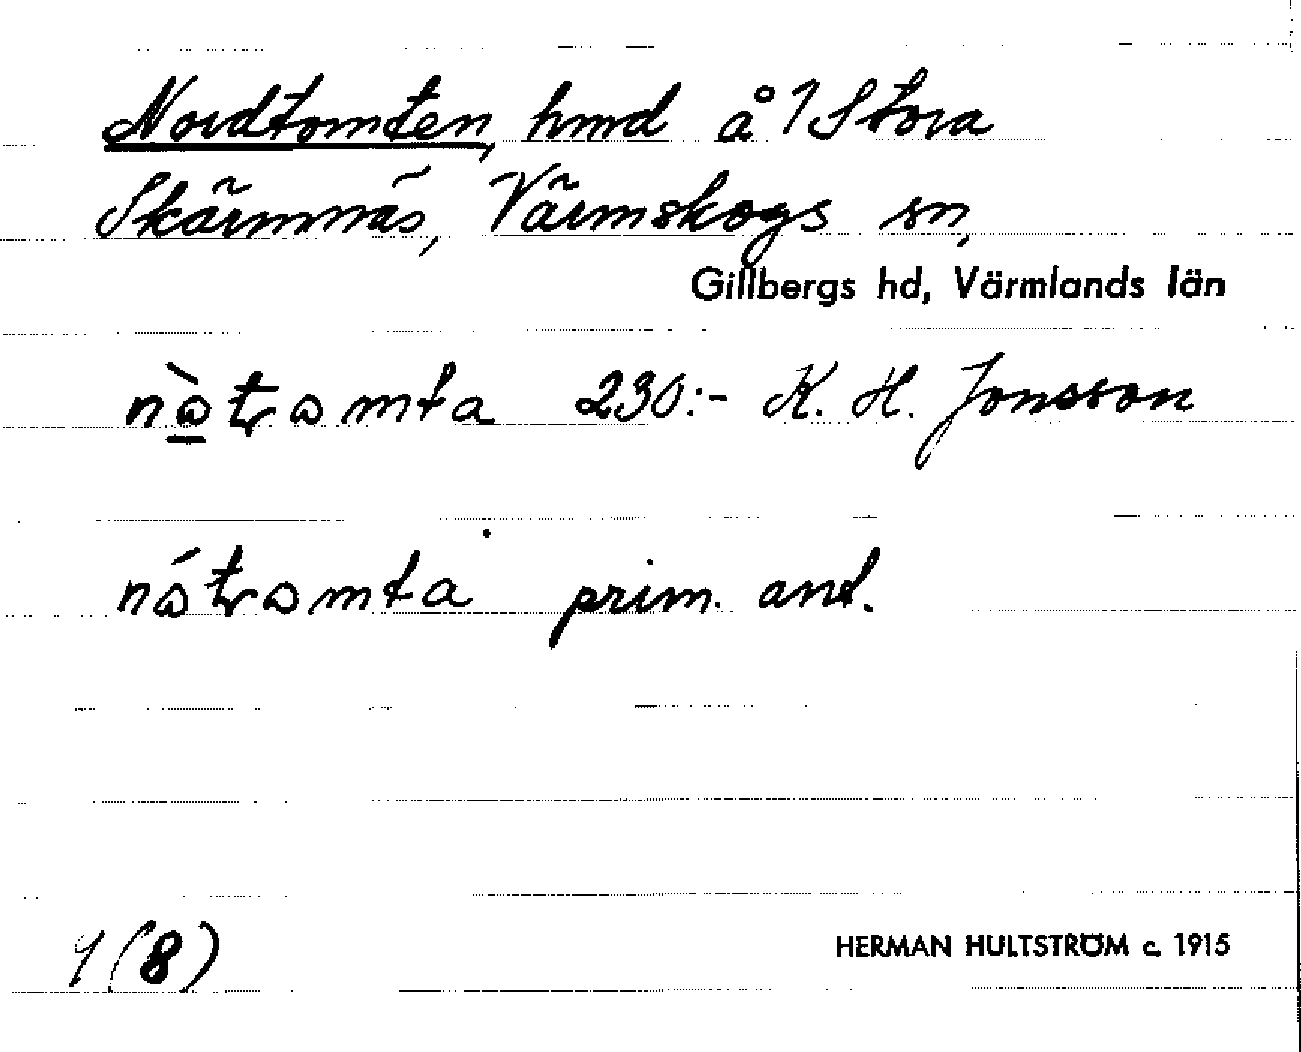 Nordtomten, hmd å 1 Stora
Skärmnäs, Värmskogs sn,
Gillbergs hd, Värmlands län
nòtomta 230:- K. H. Jonsson
nótomta prim. ant.
1 (8)
HERMAN HULTSTRÖM c. 1915